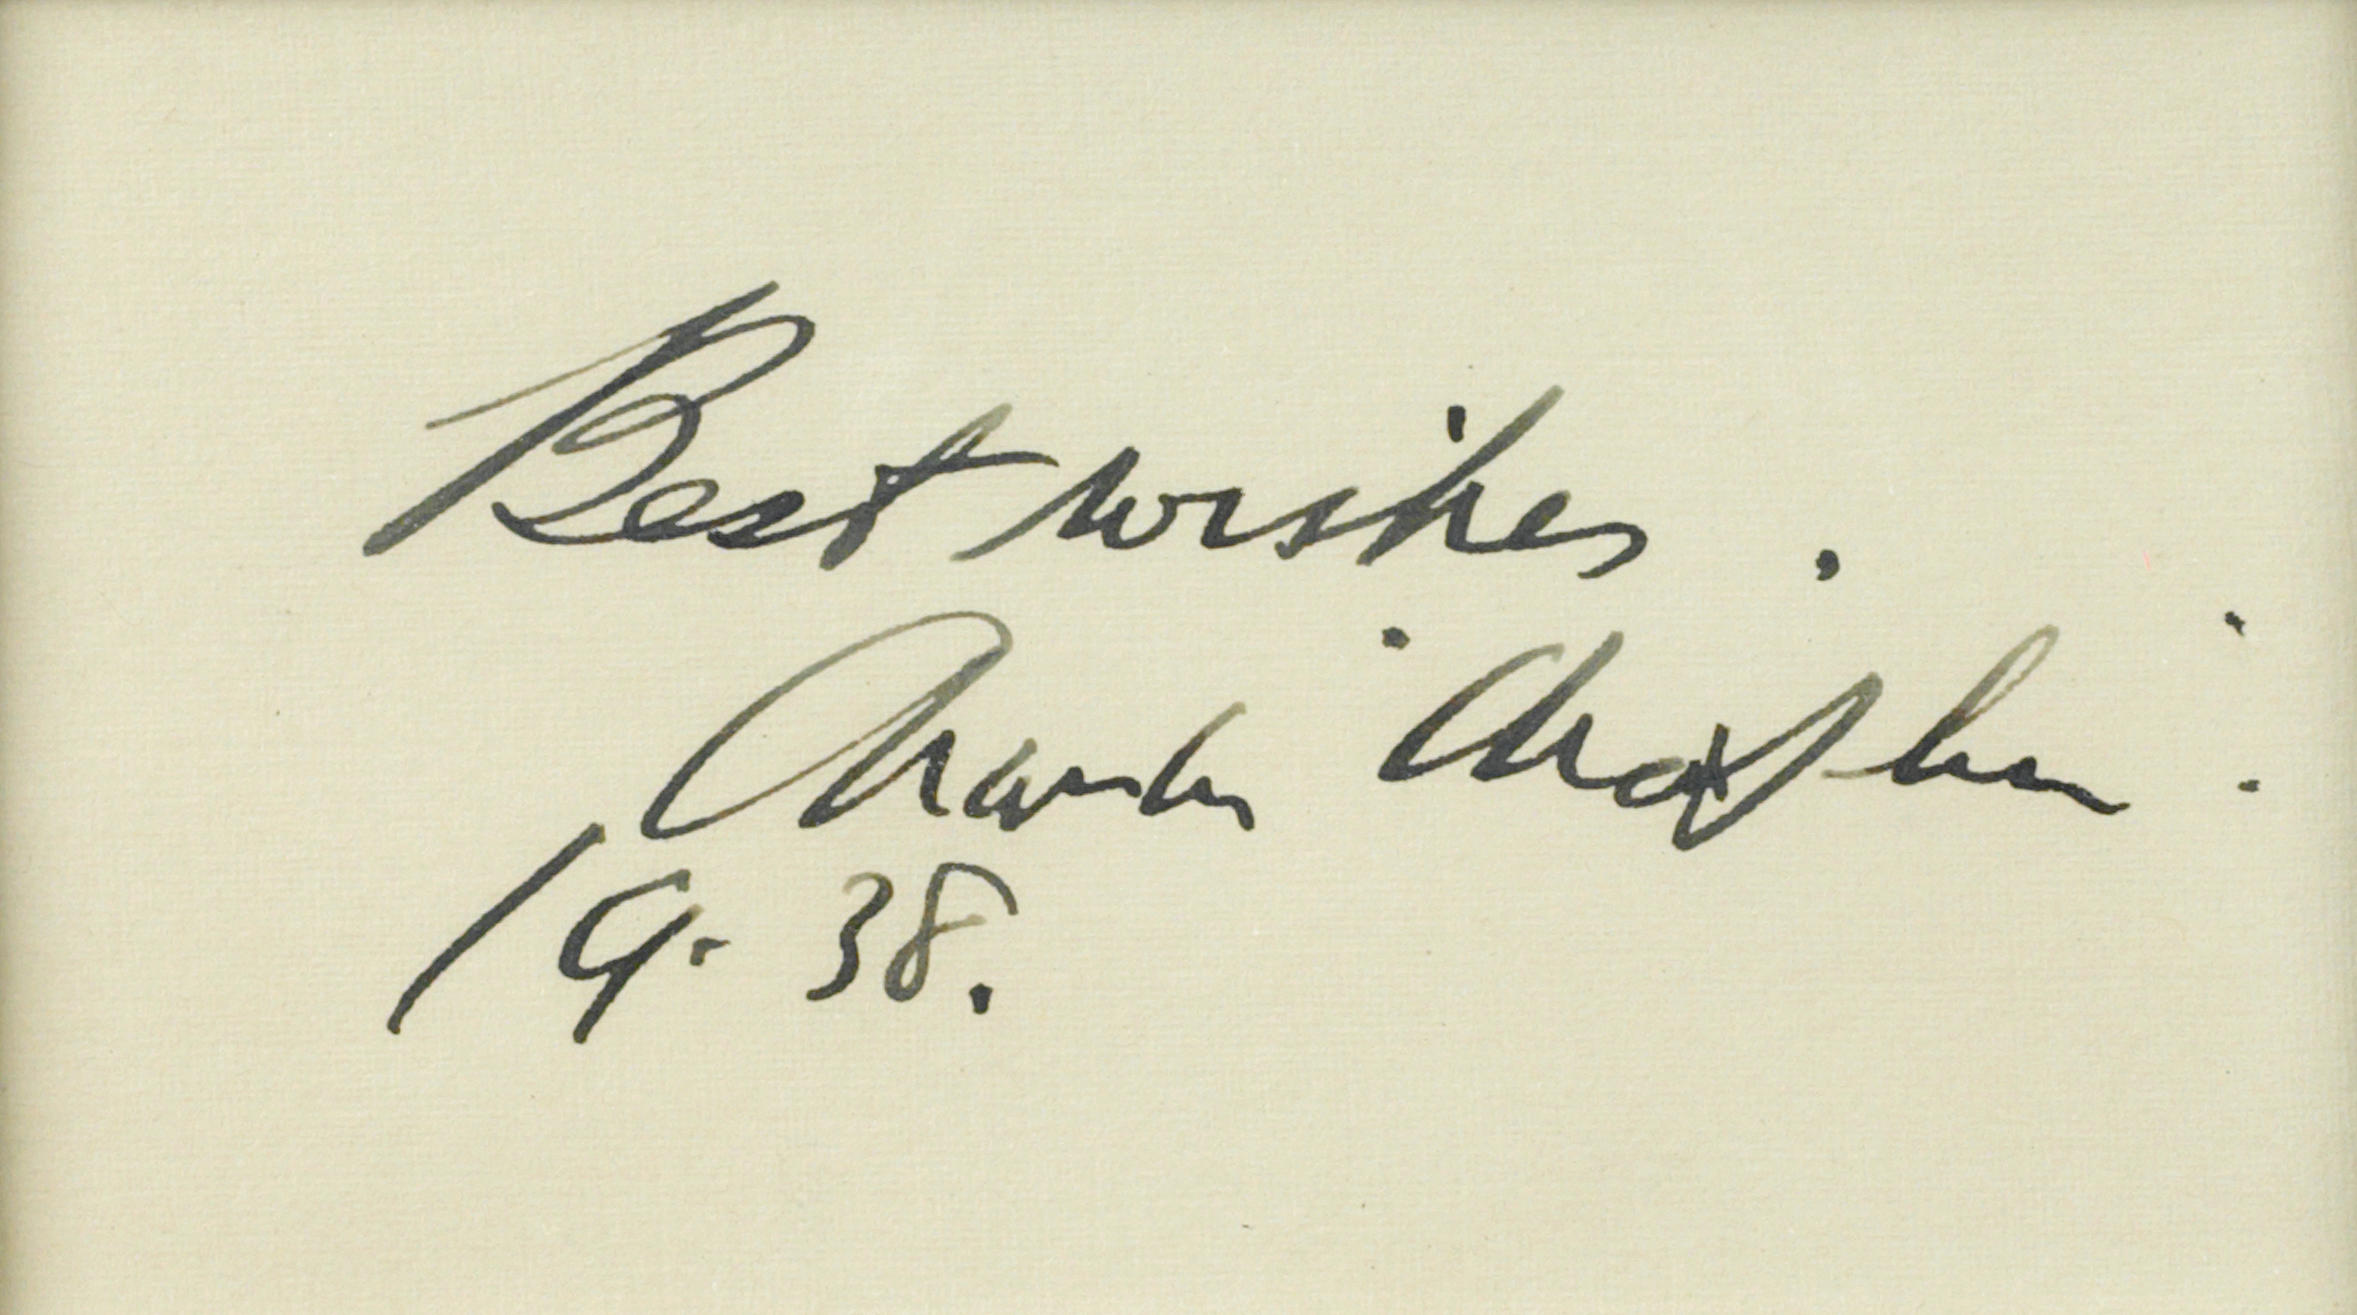 Best wishes.
Charlie Chaplin.
19. 38.